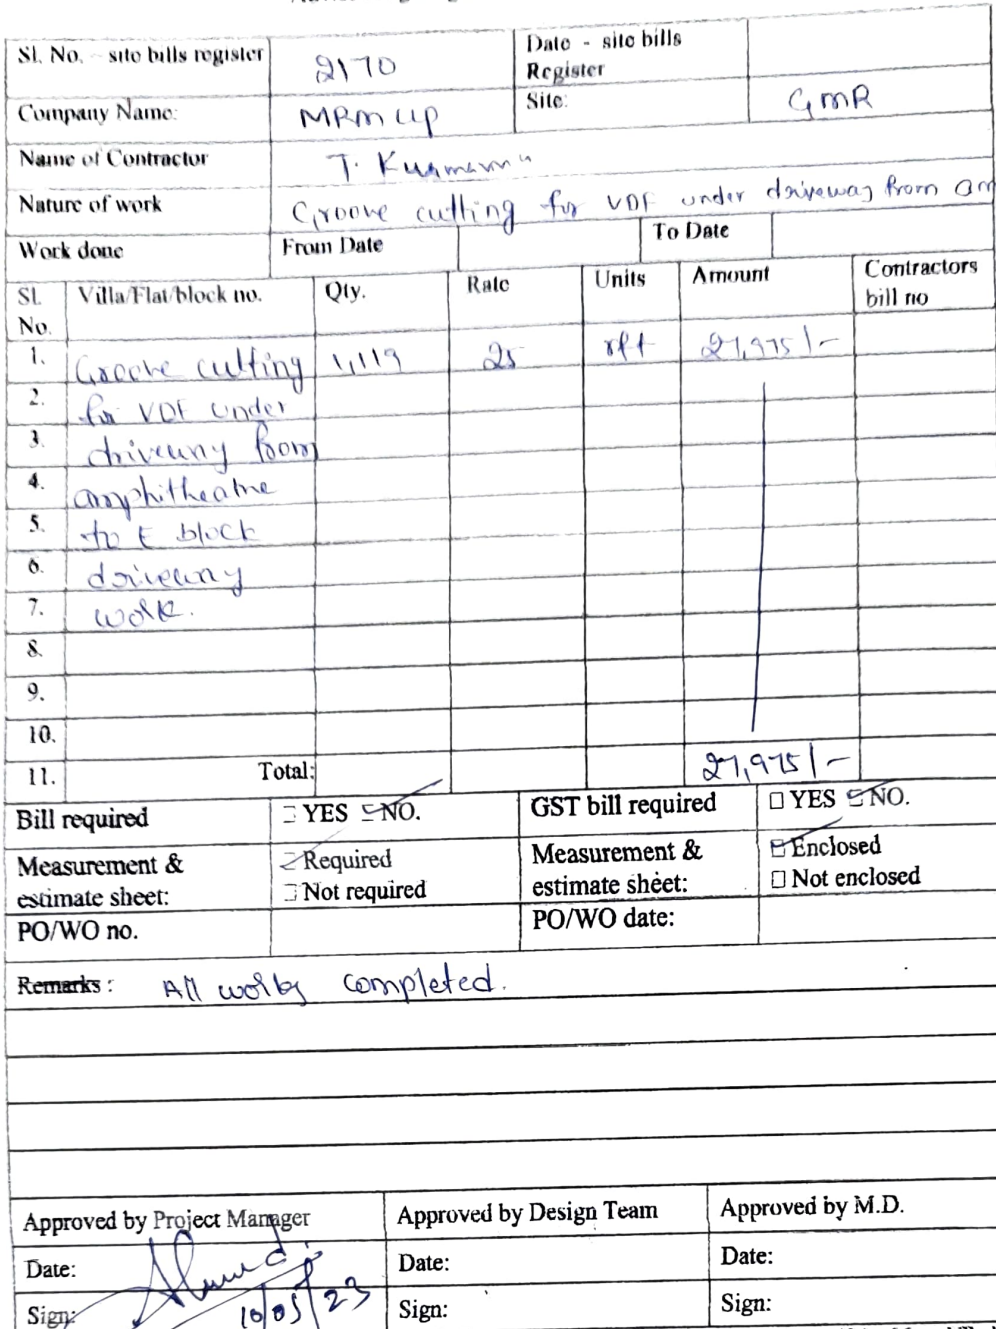 Sl. No. - site bills register 2170 Date - site bills Register
Company Name: MRM UP Site: GMR
Name of Contractor T. Kurmanna
Nature of work Groove cutting for VDF under driveway from am
Work done From Date To Date
Sl. No. Villa/Flat/block no. Qty. Rate Units Amount Contractors bill no
1. Groove cutting 1,119 25 rft 27,975/-
2. for VDF under
3. driveway from
4. amphitheatre
5. to E block
6. driveway
7. work.
8.
9.
10.
11. Total: 27,975/-
Bill required YES NO. GST bill required YES NO.
Measurement & estimate sheet: Required Not required Measurement & estimate sheet: Enclosed Not enclosed
PO/WO no. PO/WO date:
Remarks: All works completed.
Approved by Project Manager Approved by Design Team Approved by M.D.
Date: Date: Date:
Sign: 10/05/23 Sign: Sign: